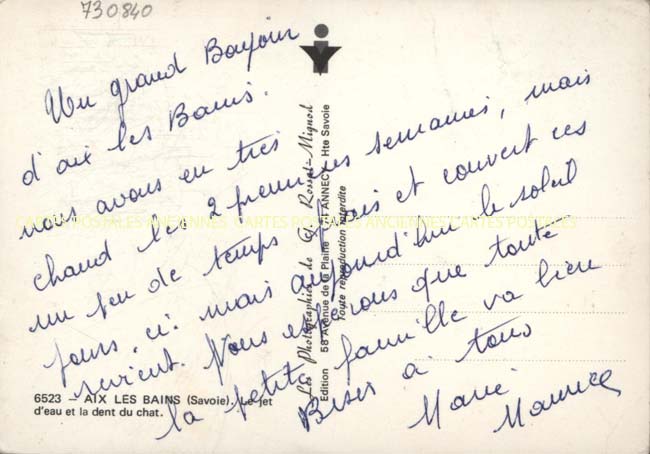 730840
Un grand Bonjour
d'aix les Bains.
nous avons eu très
chaud les 2 premières semaines, mais
un peu de temps frais et couvert ces
jours ci. mais aujourd'hui le soleil
revient. Nous espérons que toute
la petite famille va bien
Bises à tous
Marie
Maurice
6523 – AIX LES BAINS (Savoie). Le jet
d'eau et la dent du chat.
Les Photographies de G. Rosset-Mignod
Edition 58 Avenue de la Plaine ANNECY Hte Savoie
Toute reproduction interdite
CARTES POSTALES ANCIENNES CARTES POSTALES ANCIENNES CARTES POSTALES